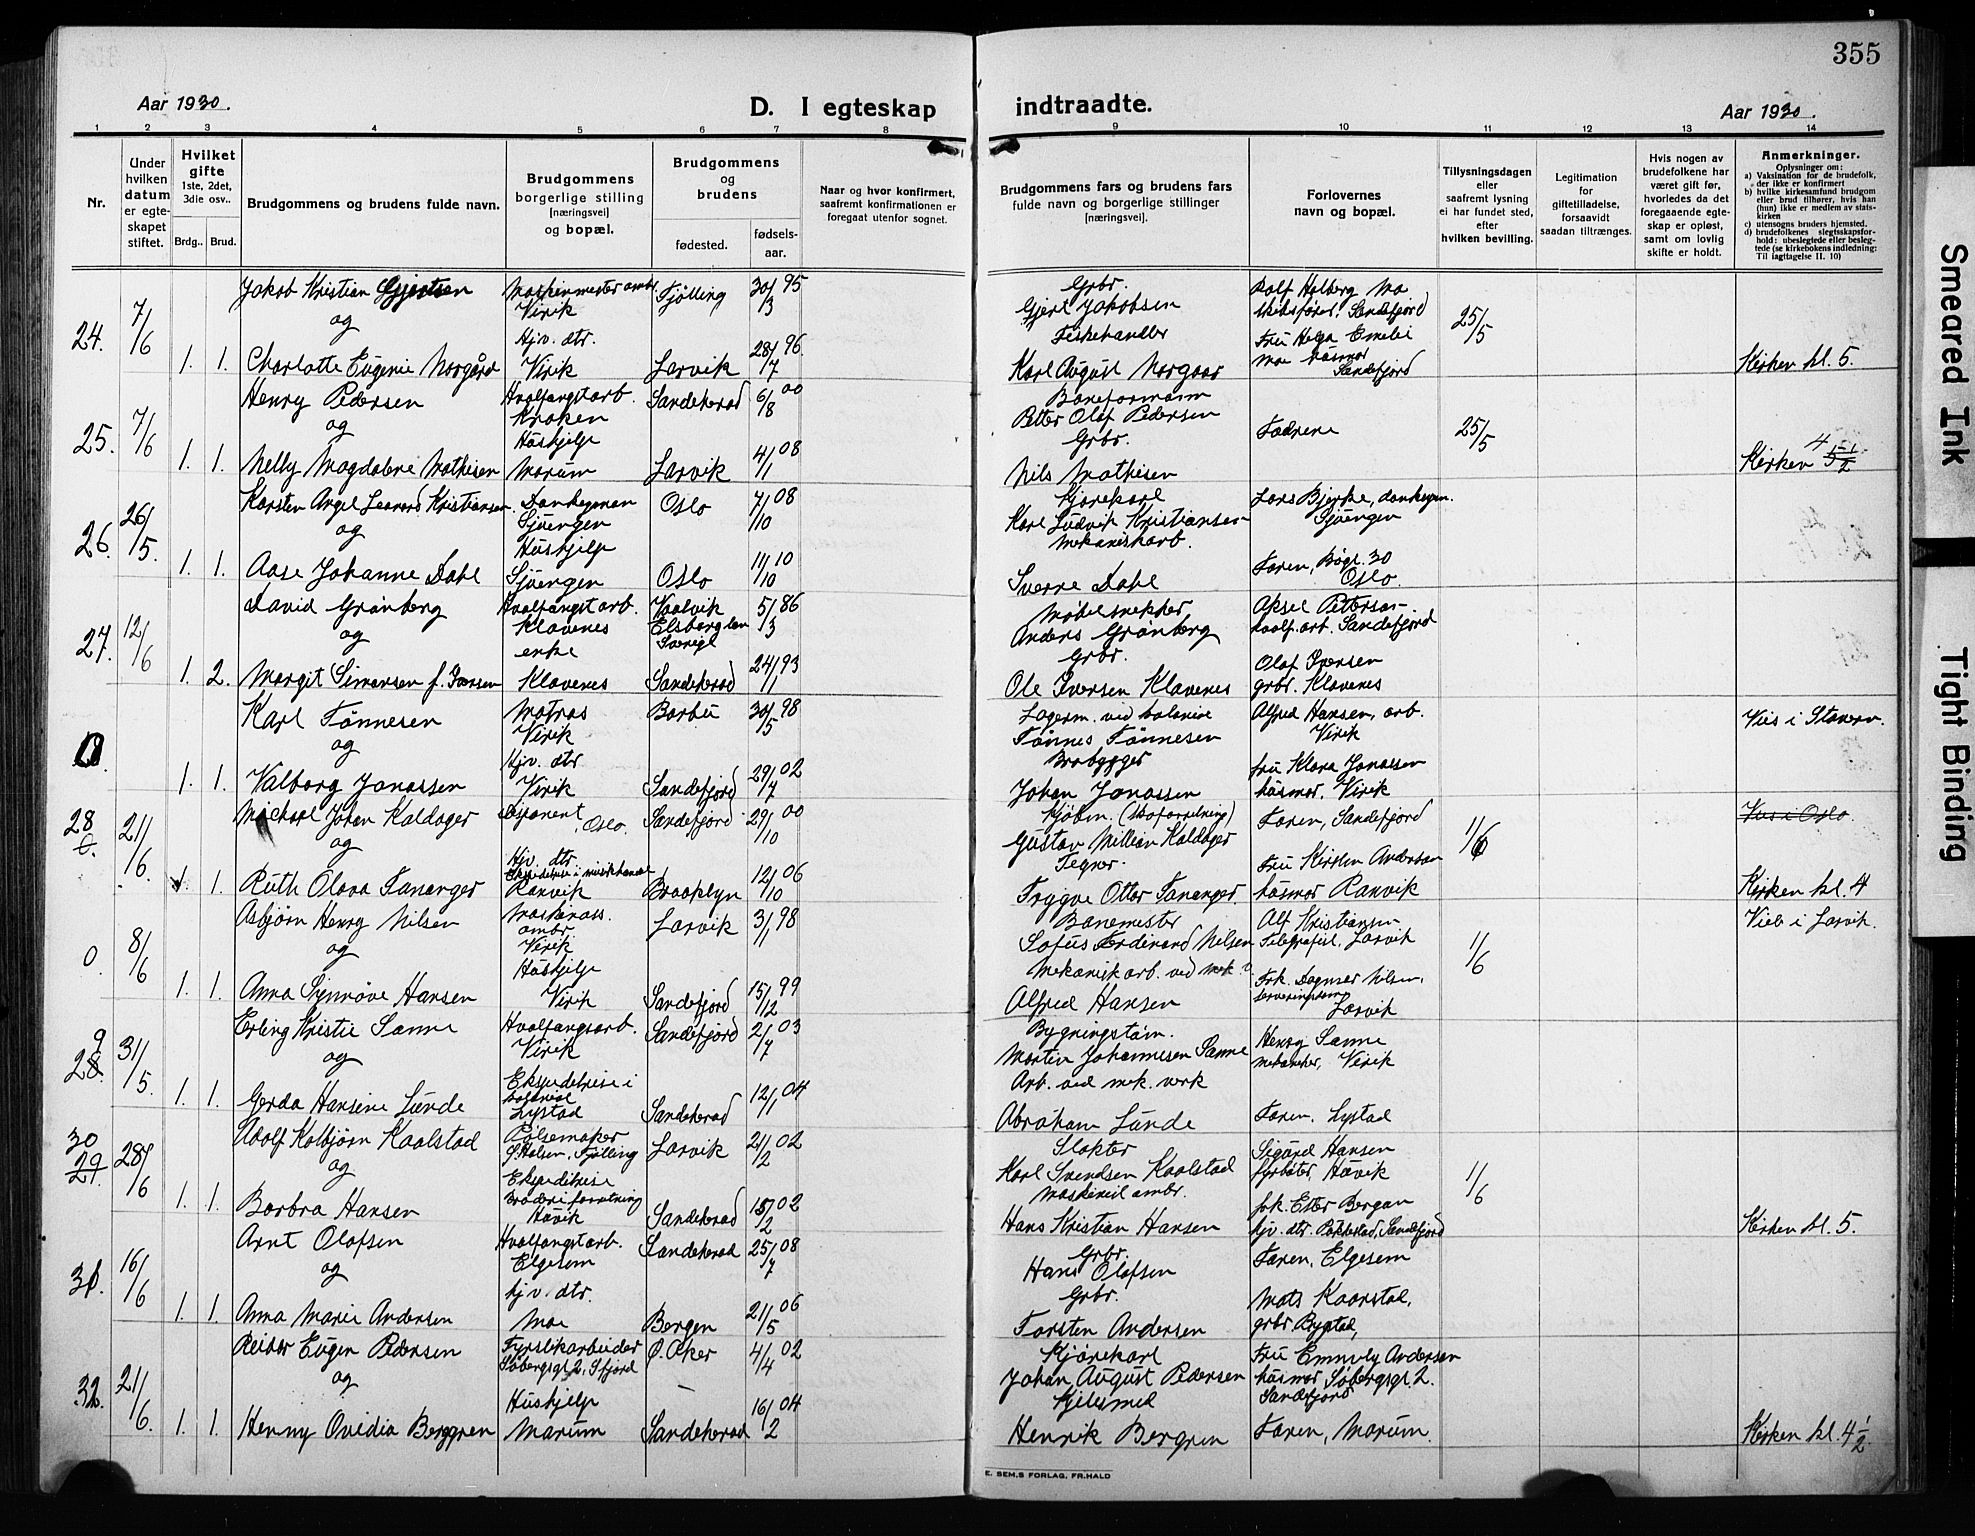 355
Aar 1930.
D. I egteskap indtraadte.
Aar 1930.
1 2 3 4 5 6 7 8 9 10 11 12 13 14
Nr.
Under hvilken datum er egte- skapet stiftet.
Hvilket gifte 1ste, 2det, 3die osv..
Brdg.. Brud.
Brudgommens og brudens fulde navn.
Brudgommens borgerlige stilling [næringsvei] og bopæl.
Brudgommens og brudens
fødested.
fødsels- aar.
Naar og hvor konfirmert, saafremt konfirmationen er foregaat utenfor sognet.
Brudgommens fars og brudens fars fulde navn og borgerlige stillinger [næringsvei].
Forlovernes navn og bopæl.
Tillysningsdagen eller saafremt lysning ei har fundet sted, efter hvilken bevilling.
Legitimation for giftetilladelse, forsaavidt saadan tiltrænges.
Hvis nogen av brudefolkene har været gift før, hvorledes da det foregaaende egte- skap er opløst, samt om lovlig skifte er holdt.
Anmerkninger.
Oplysninger om:
a) Vaksination for de brudefolk, der ikke er konfirmert
b) hvilke kirkesamfund brudgom eller brud tilhører, hvis han (hun) ikke er medlem av stats- kirken
c) utensogns bruders hjemsted.
d) brudefolkenes slegtsskapsfor- hold: ubeslegtede eller besleg- tede (se kirkebokens indledning: Til iagttagelse II. 10)
24. 7/6 1. 1.
Jakob Kristian Gjertsen
og
Charlotte Eugenie Norgård
Maskinmester
Virik
Hjv. dtr.
Virik
Tjølling 30/3 95
Larvik 28/7 96
Grbr.
Gjert Jakobsen
Fiskehandler
Karl August Norgaar
Rolf Holberg Mo
skibsfører, Sandefjord
Fru Helga Emelie
Moe husmor
Sandefjord
25/5
Kirken kl. 5.
25. 7/6 1. 1.
Henry Pedersen
og
Nelly Magdalene Mathisen
Hvalfangstarb.
Kroken
Hushjelp
Marum
Sandeherad 6/8 00
Larvik 4/1 08
Baneformann
Petter Olaf Pedersen
Grbr.
Nils Mathisen
Fædrene
25/5
Kirken 4 5 1/2
26. 26/5. 1. 1.
Karsten Angel Leonard Kristiansen
og
Aase Johanne Dahl
Sjuengen
Hushjelp
Sjuengen
Oslo 7/10 08
Oslo 11/10 10
Kjørekarl
Karl Ludvik Kristiansen
mekaniskarb.
Sverre Dahl
Lars Bjerke,
Sjuengen
Faren, 30
Oslo.
27. 12/6 1. 2.
David Grönberg
og
Margit Simonsen f. Iversen
Hvalfangstarb.
Klavenes
enke
Klavenes
Elsborg len
Sverige 5/3 86
Sandeherad 24/11 93
Møbelsnekker
Anders Grönberg
Grbr.
Ole Iversen Klavenes
Aksel Petterson
hvalf. arb. Sandefjord
Olaf Iversen
grbr. Klavenes
0. 1. 1.
Karl Tönnesen
og
Valborg Jonassen
Matros
Virik
Hjv. dtr
Virik
Barbu 30/5 98
Sandefjord 29/7 02
Lagerm. ved
Tönnes Tönnesen
Brobygger
Johan Jonassen
Alfred Hansen, arb.
Virik
fru Klara Jonassen
husmor, Virik
Vies i Stavern.
28 21/6. 1. 1.
Michael Johan Kaldager
og
Ruth Olava Tananger
Disponent, Oslo.
Hjv. dtr.
Ranvik
Sandefjord 29/10 00
Brooklyn 12/10 06
Kjøbm. (Skoforretning)
Gustav William Kaldager
Tegner.
Trygve Otter Tananger.
Faren, Sandefjord
Fru Kirsten Andersen
husmor Ranvik
1/6
Vies i Oslo.
Kirken kl. 4
0. 8/6 1. 1.
Asbjørn Henry Nilsen
og
Anna Synnöve Hansen
Maskinass.
Virik
Hushjelp
Virik
Larvik 3/11 98
Sandefjord 15/12 99
Banemester
Sofus Ferdinand Nilsen
Mekanisk arb. ved mek. v.
Alfred Hansen
Alf Kristiansen
Telegrafist, Larvik
Frk. Dagmar Nilsen,
Larvik
1/6
Vieb i Larvik.
28 9 31/5. 1. 1.
Erling Kristie Sanne
og
Gerda Hansine Lunde
Hvalfangsarb.
Virik
Ekspeditrise i
kolonial
Lystad
Sandefjord 2/7 03
Sandeherad 12/1 04
Bygningstøm.
Martin Johannesen Sanne
Arb. ved mek. verk
Abraham Lunde
Henry Sanne
mekaniker, Virik
Faren. Lystad
30 29. 28/6 1. 1.
Adolf Kolbjørn Kaalstad
og
Borbra Hansen
Pølsemaker
Ø. Halsen, Tjølling
Ekspeditrise
Broderiforretning
Haavik
Larvik 21/2 02
Sandeherad 15/2 02
Slakter
Karl Svendsen Kaalstad
Hans Kristian Hansen
Sigurd Hansen
fyrbøter, Haavik
frk. Ester Bergan
hjv. dtr. Sandefjord
1/6
Kirken kl. 5.
31. 16/6 1. 1.
Arnt Olafsen
og
Anna Marie Andersen
Hvalfangstarb.
Elgesem
hjv. dtr.
Moe
Sandeherad 25/7 08
Bergen 21/5 06
Grbr.
Hans Olafsen
Grbr.
Torsten Andersen
Faren, Elgesem
Mats Kaarstal,
grbr Bygstad,
32. 21/6. 1. 1.
Reidar Eugen Pedersen
og
Henny Ovidia Berggren
Fyrstikarbeider
Søbergsgt. 2, S.fjord
Hushjelp
Marum
Ø. Aker 4/4 02
Sandeherad 16/2 04
Kjørekarl
Johan August Pedersen
Kjelesmed
Henrik Bergren
Fru Emmely Andersen
husmor Søbergsgt. 2.
Sandefjord
Faren, Marum.
Kirken kl. 4 1/2.
E. SEM.S FORLAG, FR.HALD
Smeared Ink
Tight Binding